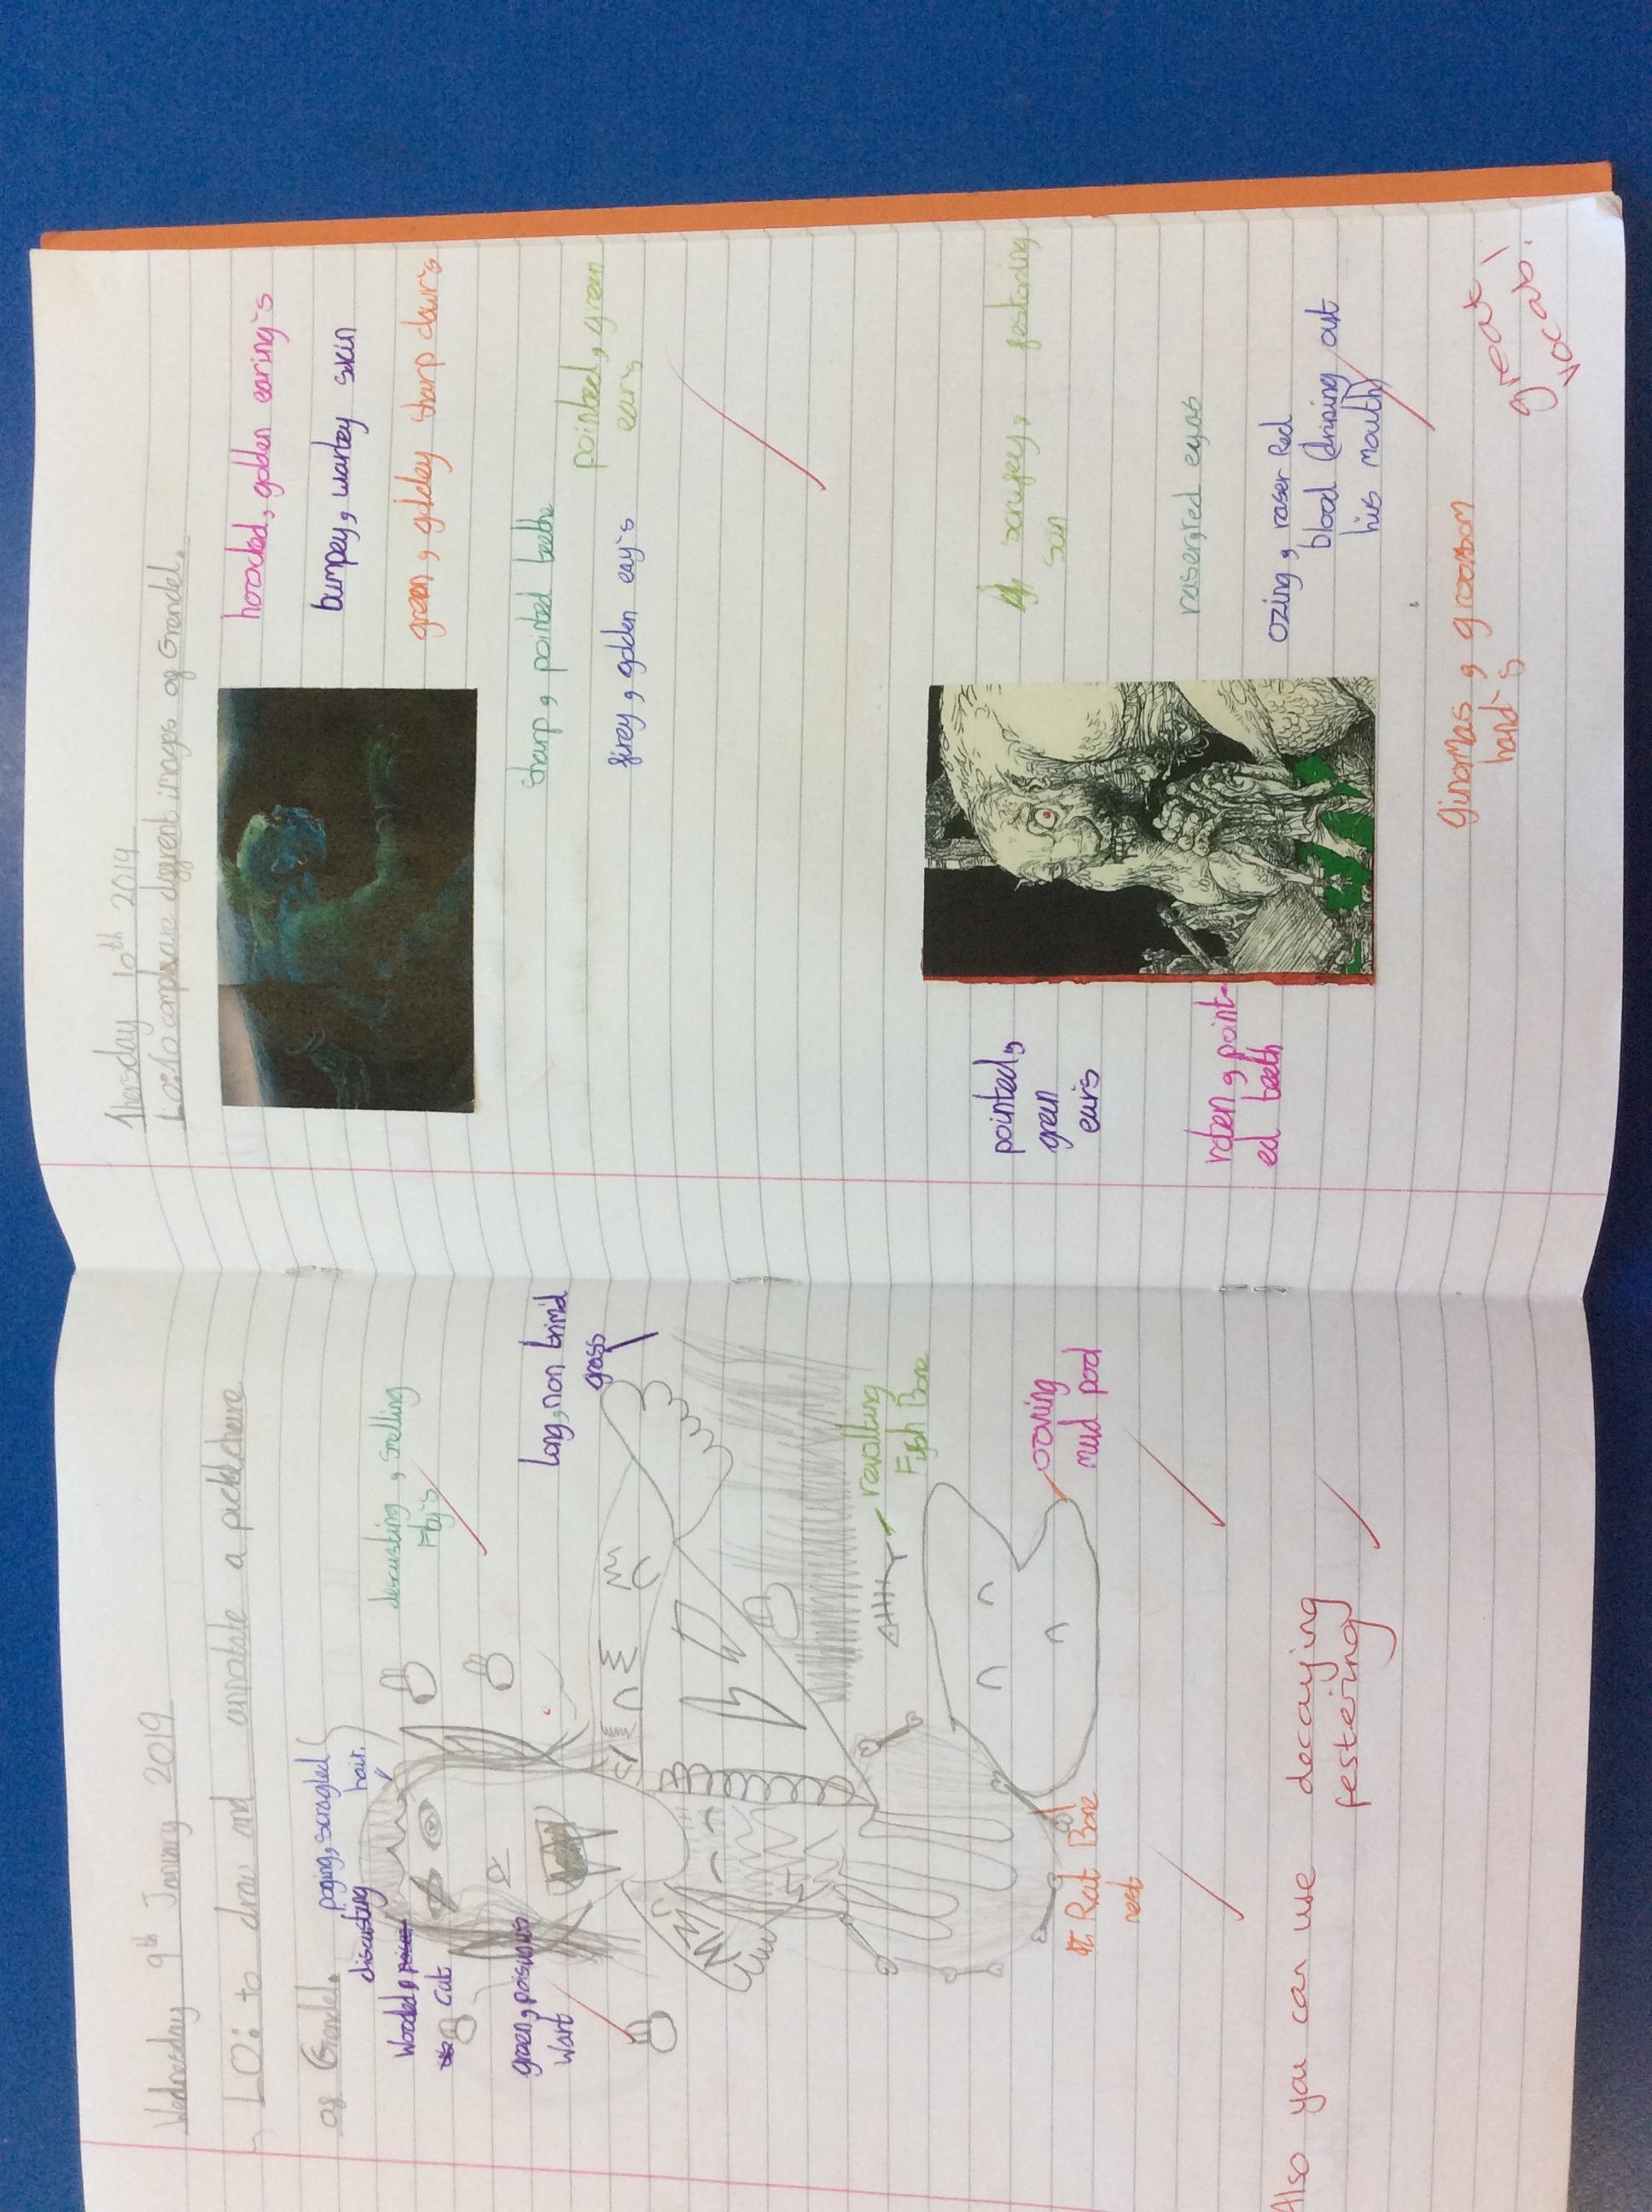 Wednesday 9th January 2019
LO: to draw and annotate a pickchure
of Grendel.
poging, scragled
hair.
discusting
Wooded,
cut
green, poiswous
Wart
descusting, smelling
Fly's
long, non trim'd
grass
revolting
Fish Bone
ooving
mud pool
Rat Bone
nest
Also you can use decaying
festering
Thersday 10th 2019
Lo: To comphare diffrent images of Grendel.
hoocked, golden earing's
bumpey, wartey skin
green, goldey sharp claw's
sharp, pointed teethe
pointed, green
ears
firey, golden eay's
scrufey, festoring
scin
raser, red eyes
ozing, raser Red
blood driping out
his mouth
pointed,
green
ears
roten, point-
ed teeth
ginormas, groosom
hand's
great
vocab!